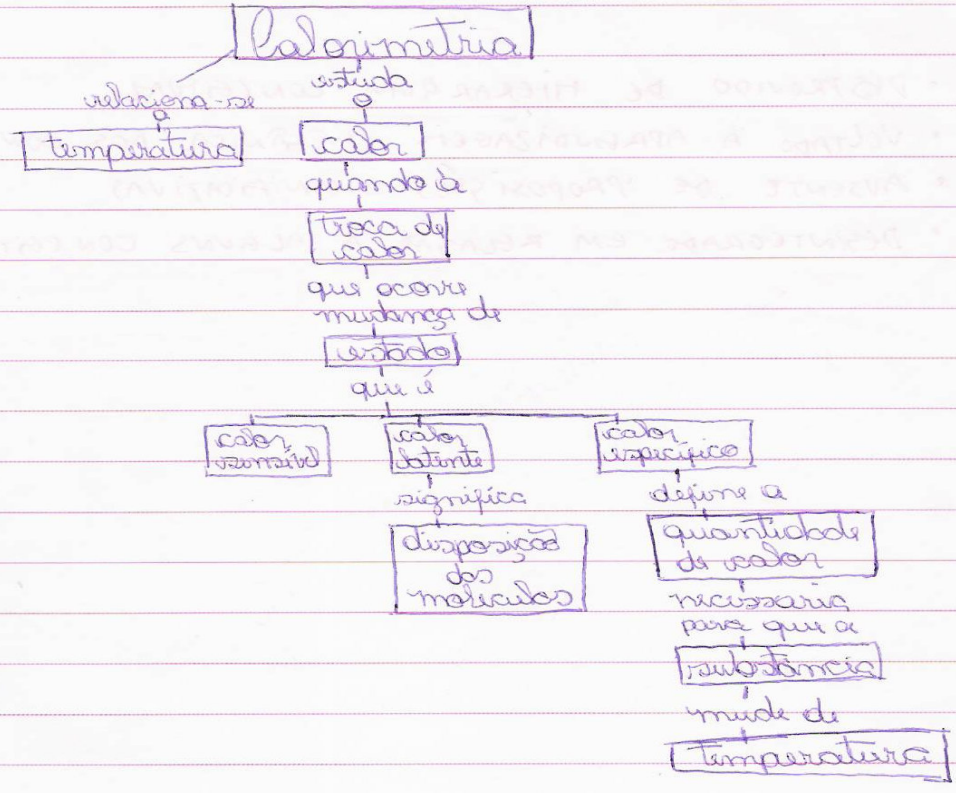 Calorimetria
relaciona-se
a
temperatura
estuda
o
calor
quando à
troca de
calor
que ocorre
mudança de
estado
que é
calor
sensível
calor
latente
significa
disposição
das
moléculas
calor
específico
define a
quantidade
de calor
necessaria
para que a
substância
mude de
temperatura